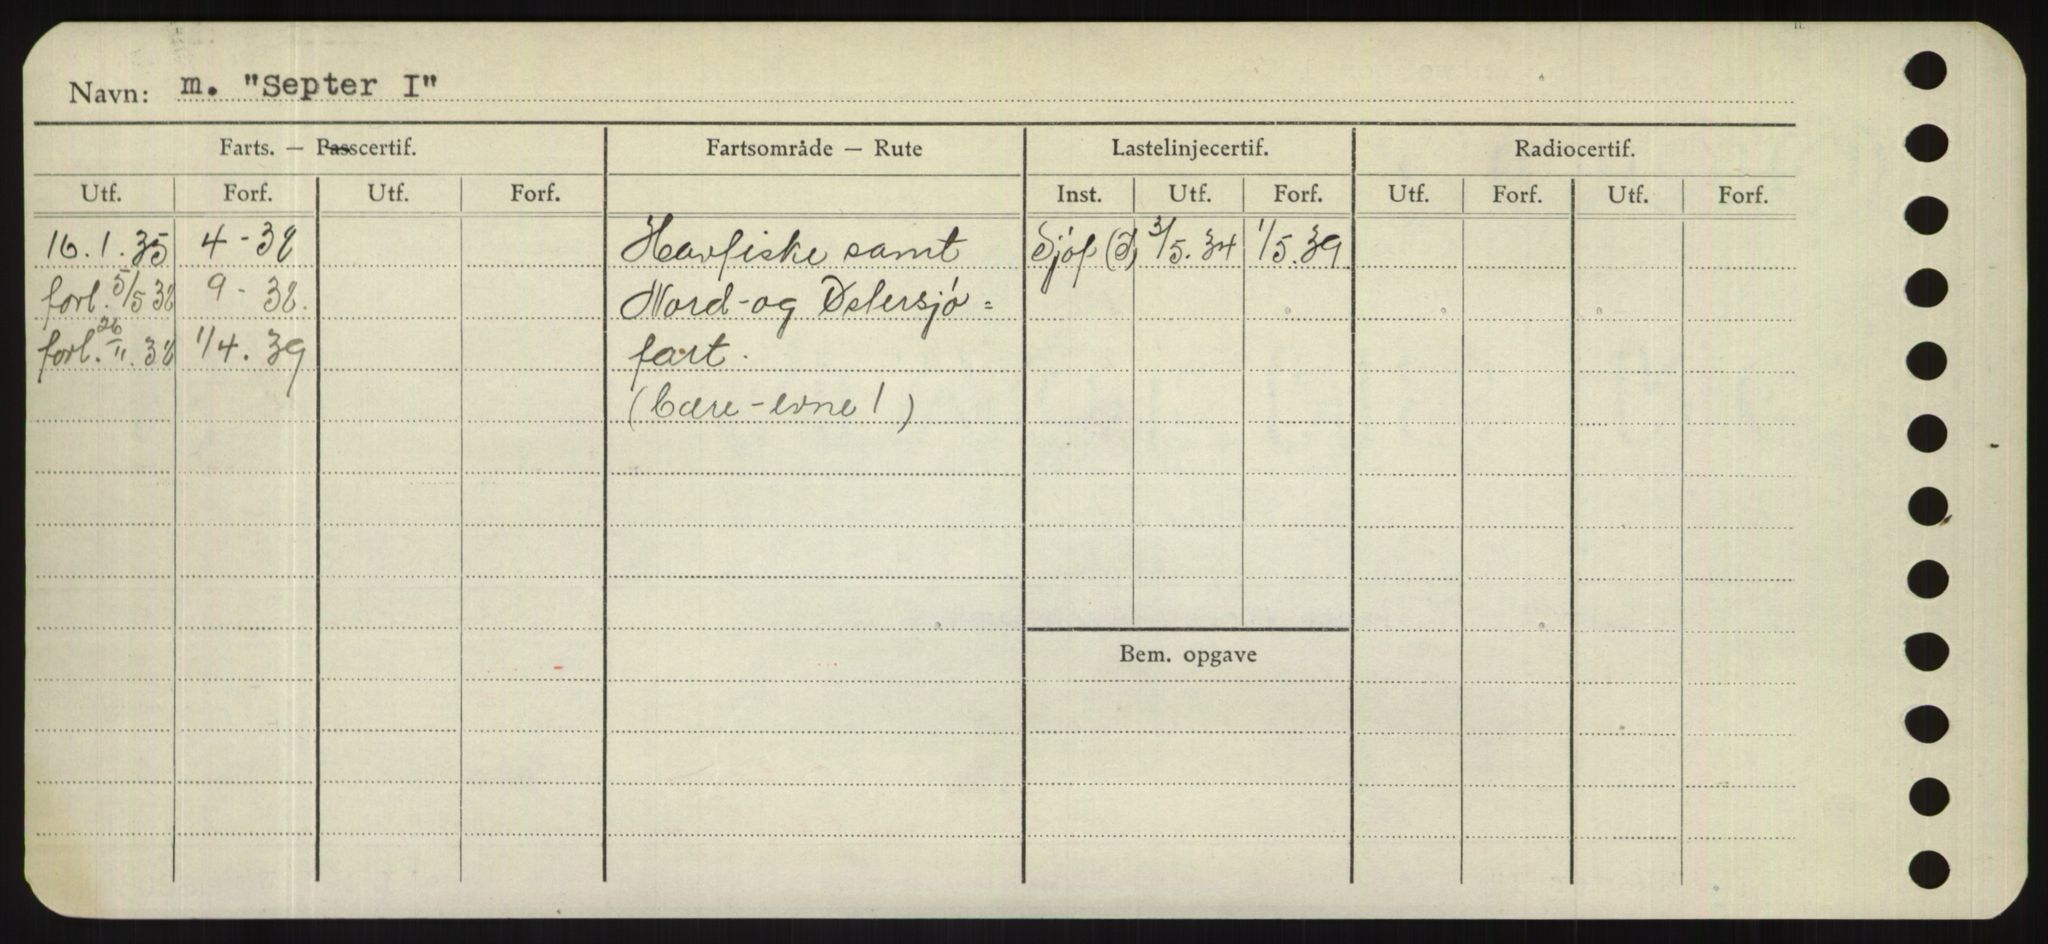 Navn: m. "Septer I"
Farts. — Passcertif. Fartsområde — Rute Lastelinjecertif. Radiocertif.
Utf. Forf. Utf. Forf. Inst. Utf. Forf. Utf. Forf. Utf. Forf.
16.1.35 4-38 Havfiske samt Sjöf (d) 3/5.34 1/5.39
forl. 5/5 38 9-38. Nord- og Østersjö=
forl. 26/11.38 1/4.39 fart.
(bære-evne!)
Bem. opgave